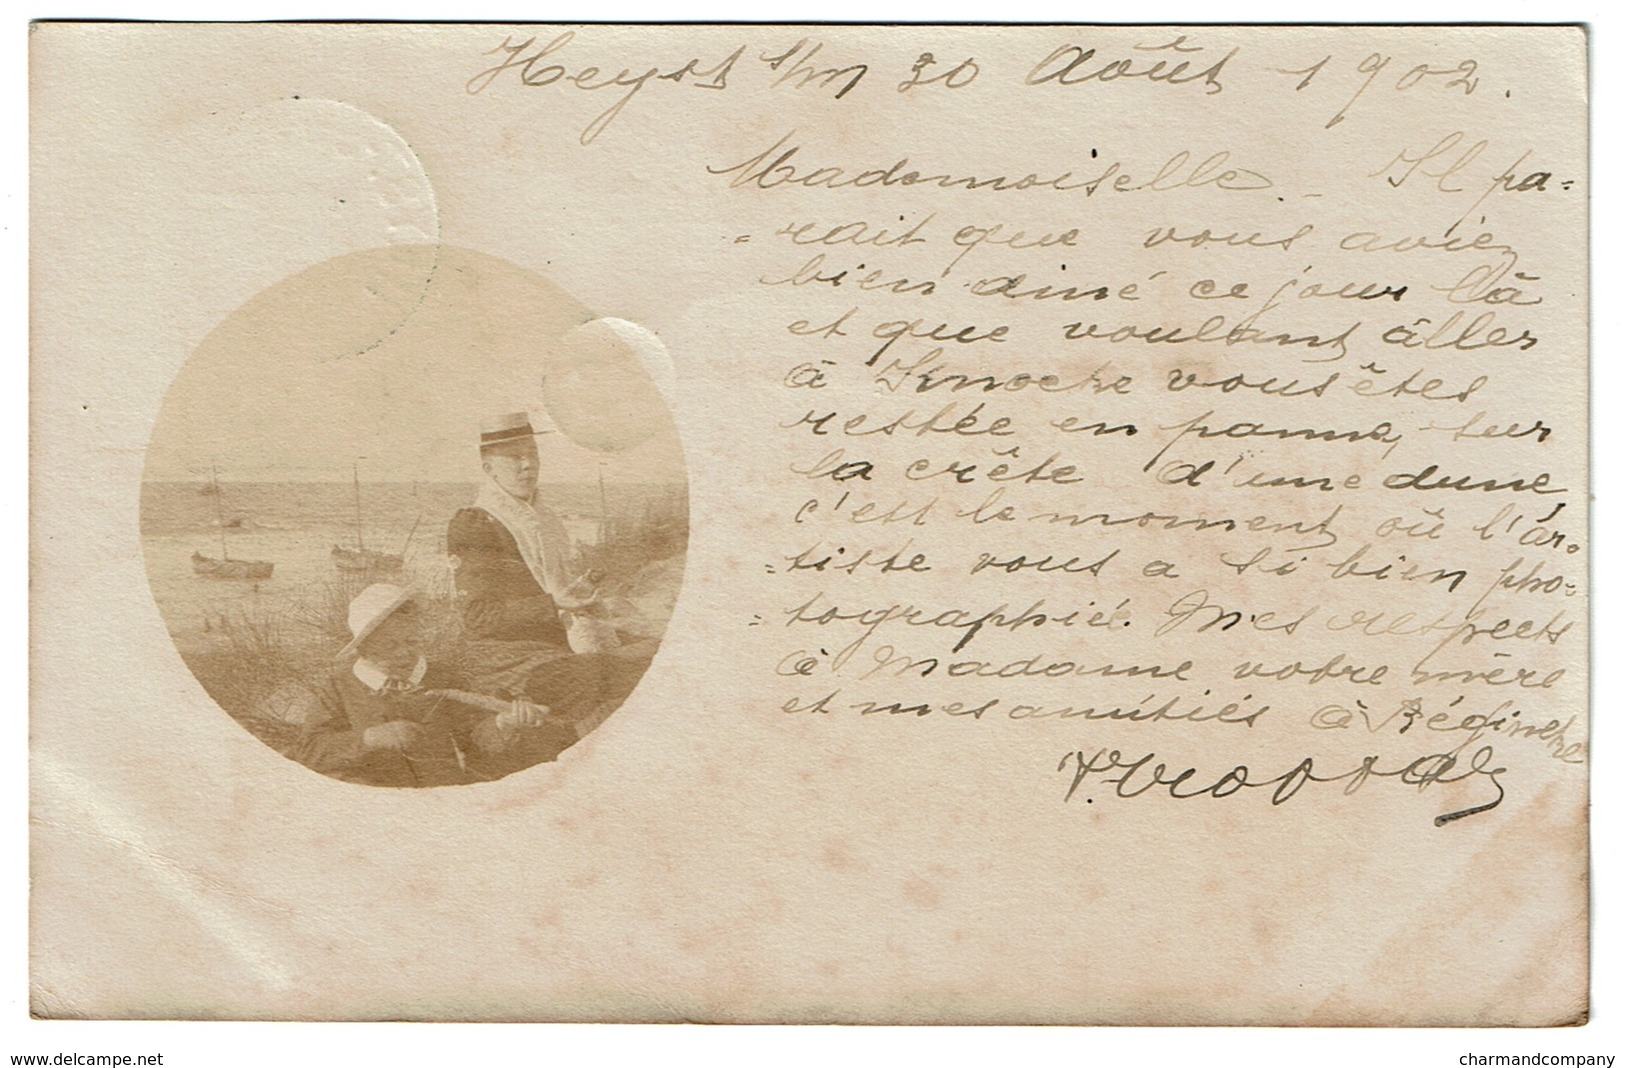 Heyst s/m 30 Août 1902.
Mademoiselle. _ Il pa=
=rait que vous aviez
bien diné ce jour là
et que voulant âller
à Knocke vous êtes
restée en panne, sur
la crête d'une dune,
c'est le moment où l'ar=
=tiste vous a si bien pho=
=tographié. Mes respects
à Madame votre mère
et mes amitiés à Réginette
www.delcampe.net
charmandcompany